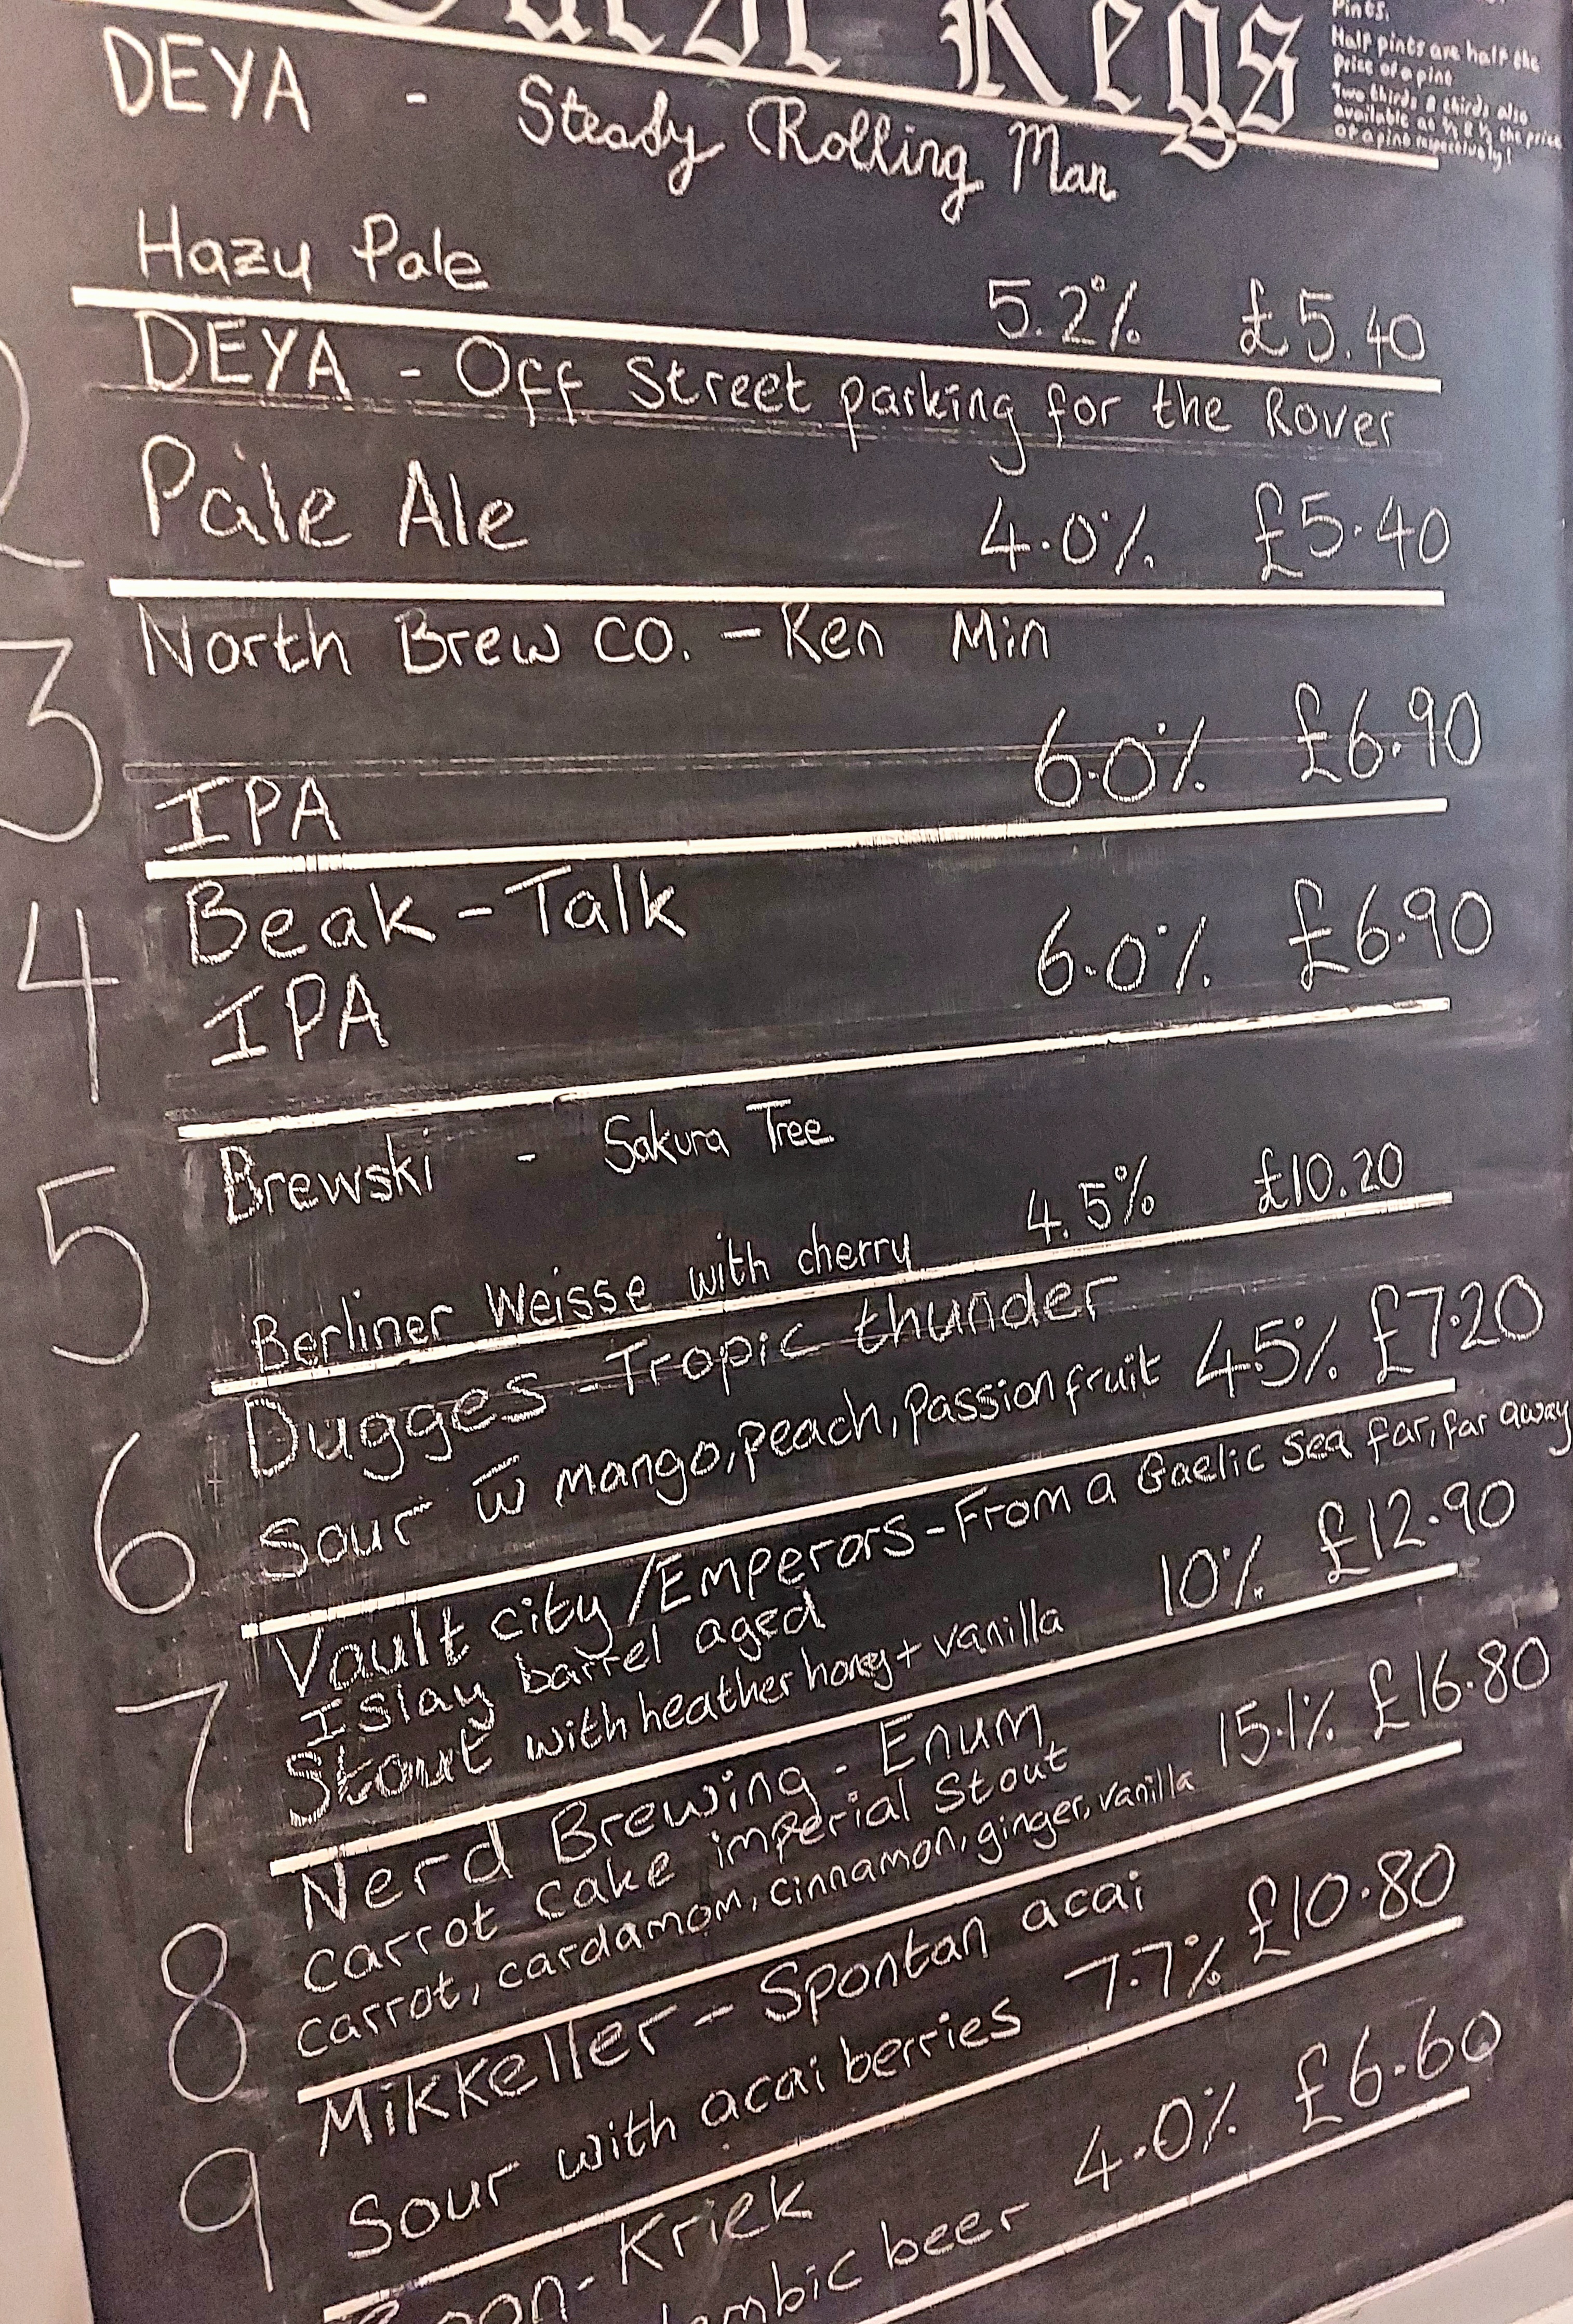 Guest Kegs
Pints.
Half pints are half the
price of a pint
Two thirds & thirds also
available at ⅔ & ⅓ the price
of a pint respectively!
DEYA - Steady Rolling Man
Hazy Pale 5.2% £5.40
2
DEYA - Off Street parking for the Rover
Pale Ale 4.0% £5.40
3
North Brew CO. - Ken Min
IPA 6.0% £6.90
4
Beak - Talk
IPA 6.0% £6.90
5
Brewski - Sakura Tree
Berliner Weisse with cherry 4.5% £10.20
6
Dugges - Tropic thunder
Sour w̄ mango, peach, passionfruit 4.5% £7.20
7
Vault city/Emperors - From a Gaelic sea far, far away
Islay barrel aged
Stout with heather honey + vanilla 10% £12.90
8
Nerd Brewing - Enum
Carrot Cake imperial Stout
carrot, cardamom, cinnamon, ginger, vanilla 15.1% £16.80
9
Mikkeller - Spontan acai
Sour with acai berries 7.7% £10.80
Boon - Kriek
Lambic beer 4.0% £6.60